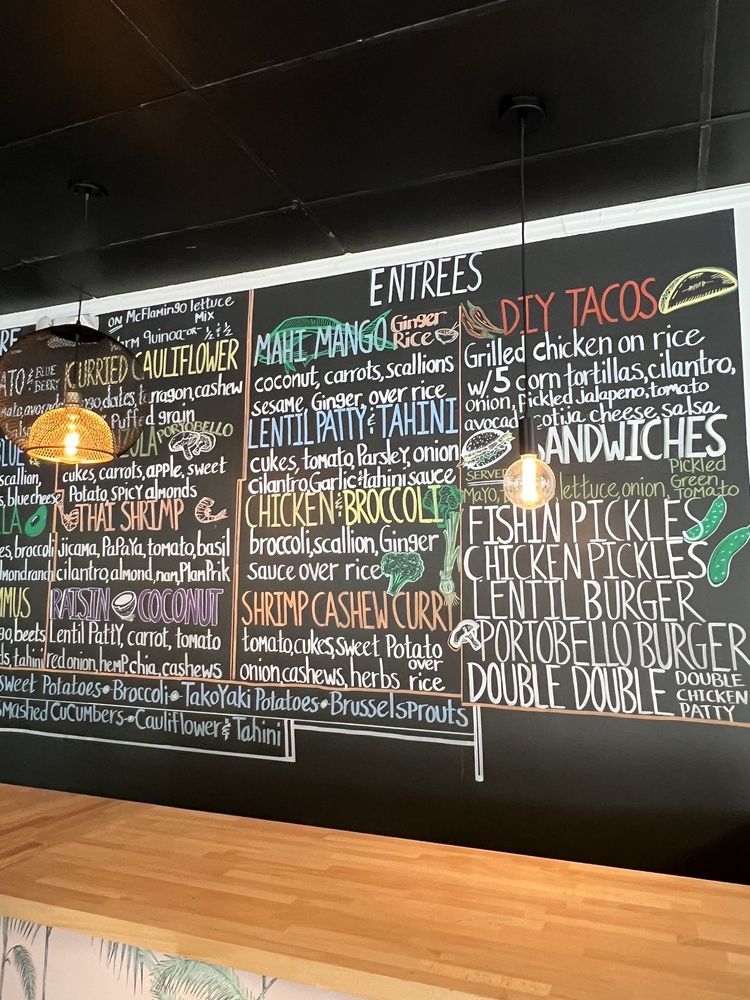 ON McFlamingo lettuce
MIX
quinoa -or- ½ & ½
CURRIED CAULIFLOWER
BLUE
BERRY
dates, tarragon, cashew
Puffed grain
PORTOBELLO
cukes, carrots, apple, sweet
Potato, spicy almonds
scallion,
blue cheese
THAI SHRIMP
Jicama, PaPaYa, tomato, basil
cilantro, almond, nam Plam Prik
broccoli
RAISIN COCONUT
Lentil Patty, carrot, tomato
red onion, hemp, chia, cashews
beets
tahini
ENTREES
MAHI MANGO Ginger
Rice
coconut, carrots, scallions
sesame, Ginger, over rice
LENTIL PATTY & TAHINI
cukes, tomato, Parsley, onion
cilantro, Garlic & tahini sauce
CHICKEN & BROCCOLI
broccoli, scallion, Ginger
sauce over rice
SHRIMP CASHEW CURRY
tomato, cukes, sweet Potato
onion, cashews, herbs over
rice
DIY TACOS
Grilled chicken on rice
w/5 corn tortillas, cilantro,
onion, Pickled Jalapeno, tomato
avocado, cotija cheese, salsa
SANDWICHES
SERVED
Mayo, lettuce, onion, Pickled
Green
Tomato
FISH IN PICKLES
CHICKEN PICKLES
LENTIL BURGER
PORTOBELLO BURGER
DOUBLE DOUBLE DOUBLE
CHICKEN
PATTY
Sweet Potatoes • Broccoli • TakoYaki Potatoes • Brussel sprouts
Smashed CuCumbers • Cauliflower & Tahini